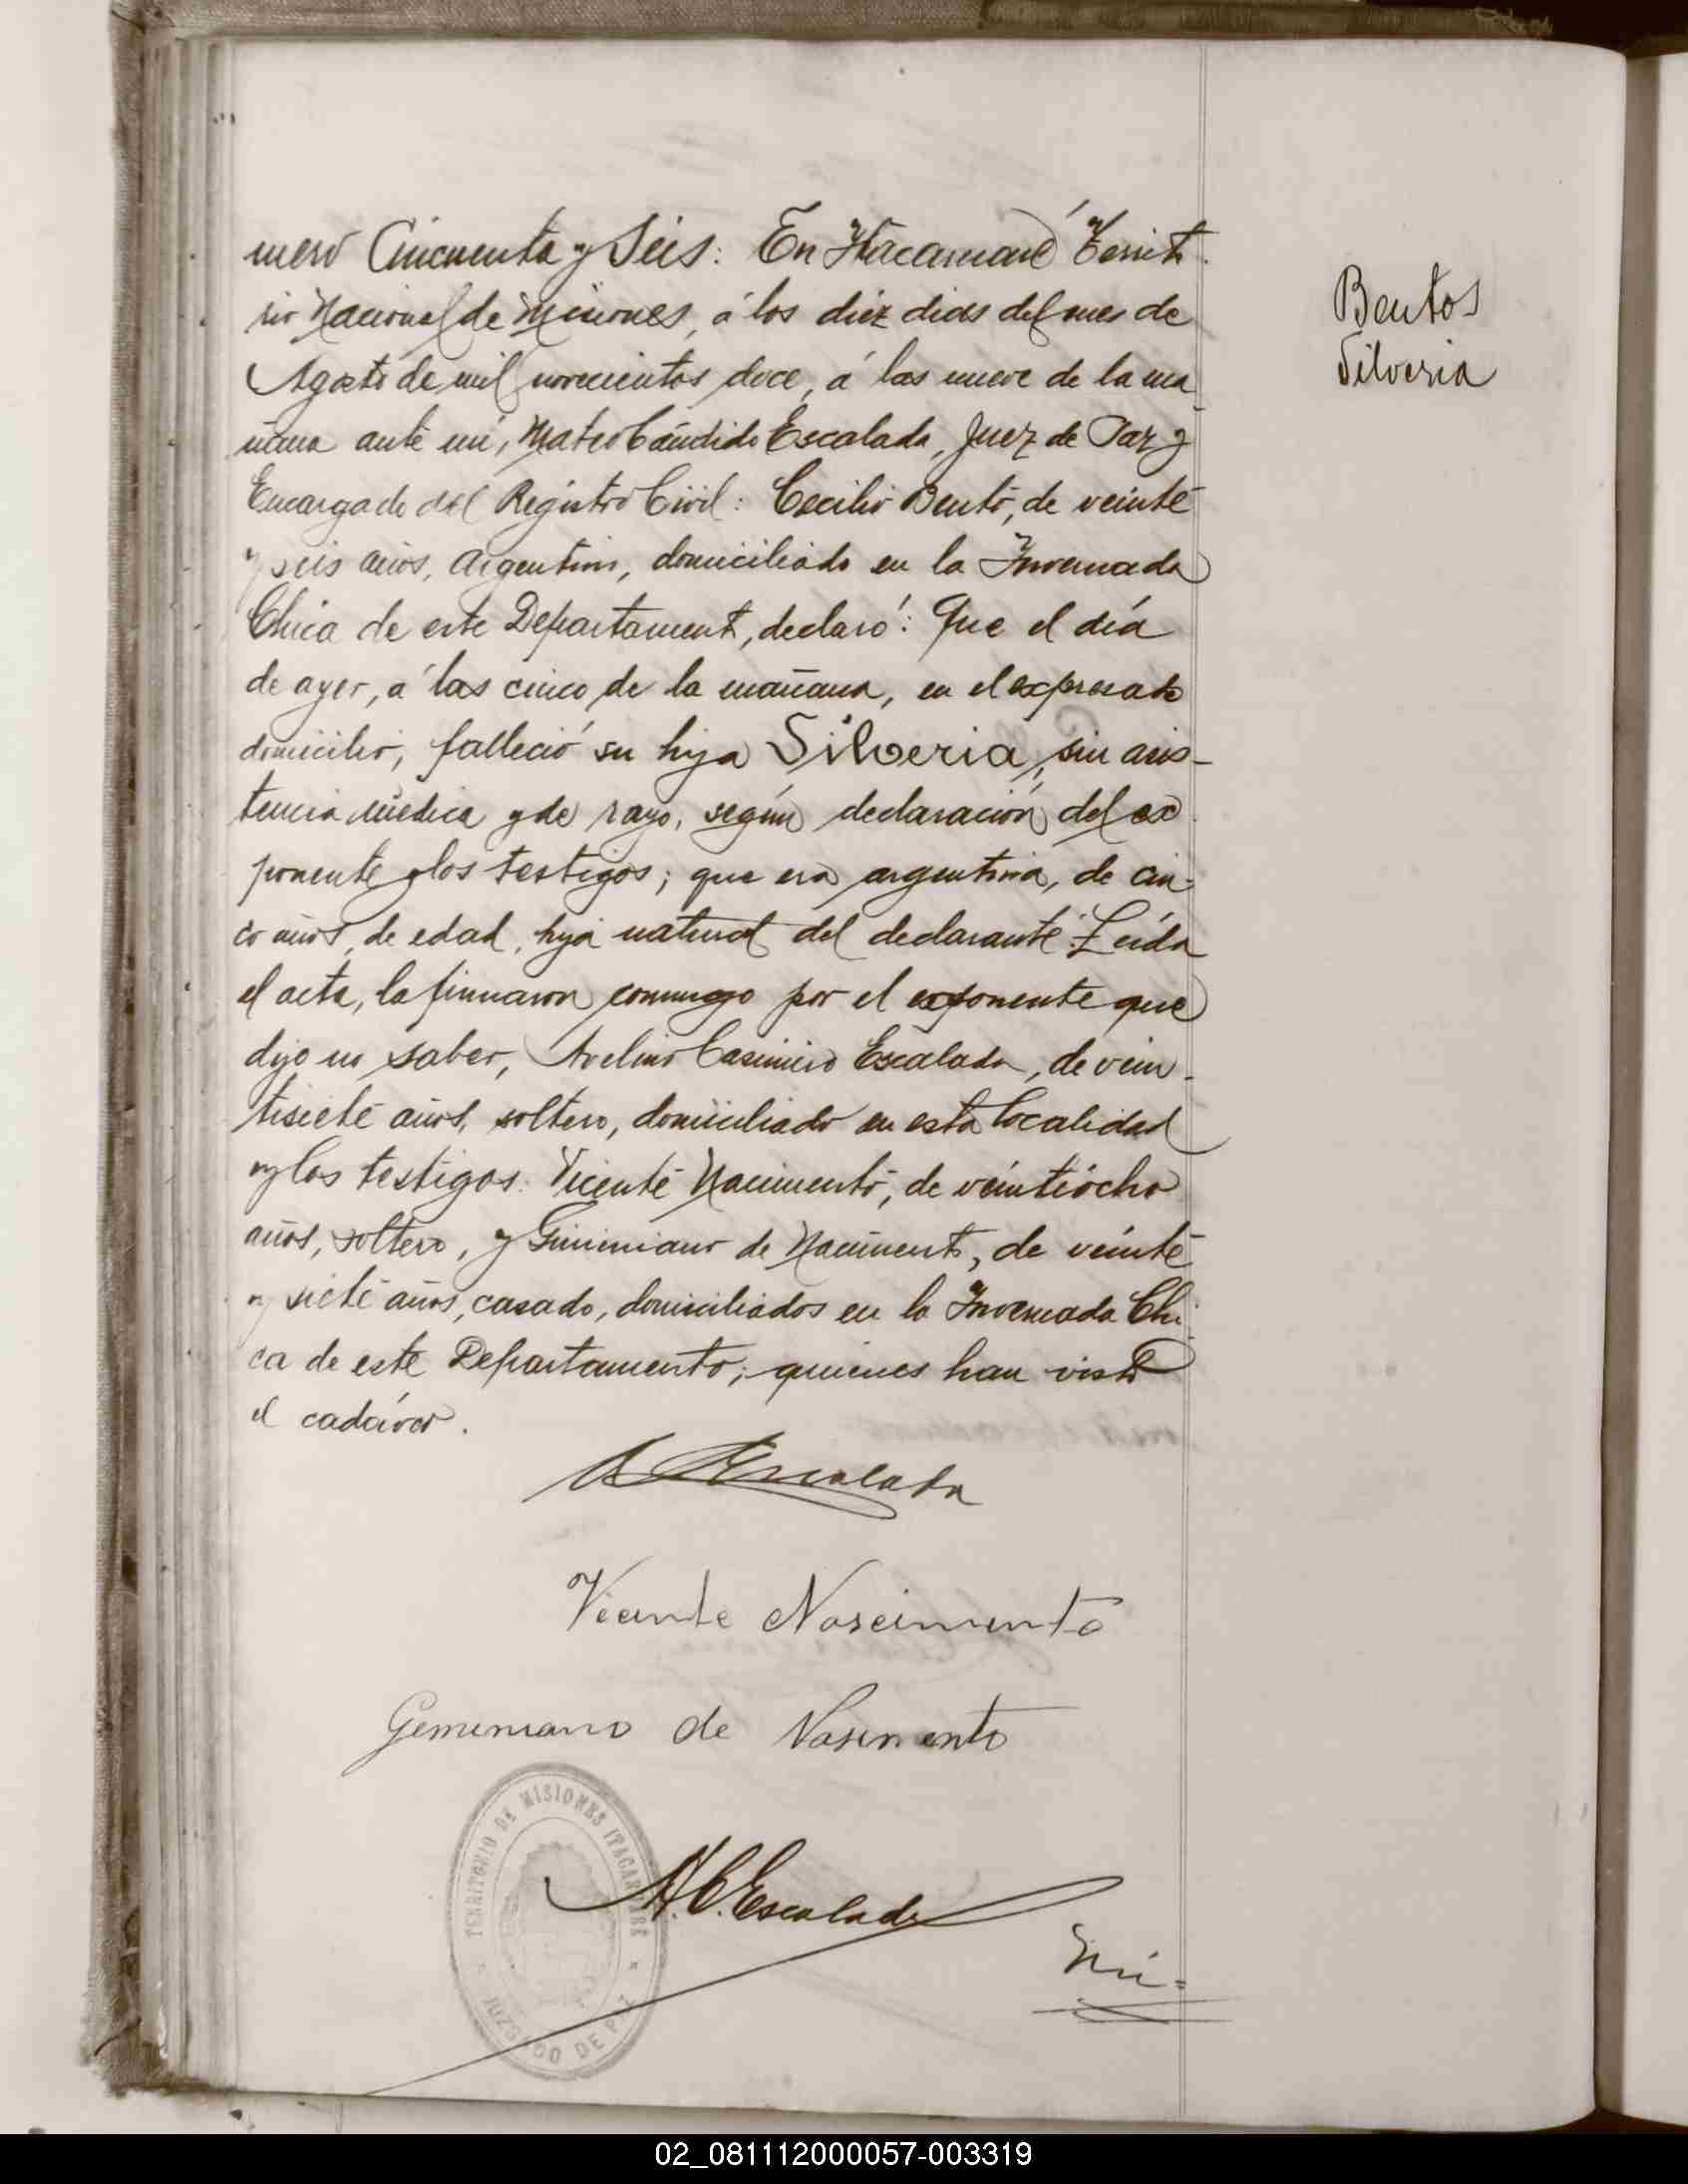 mero Cincuenta y Seis: En Itacaruaré Territo
rio Nacional de Misiones, á los diez dias del mes de
Agosto de mil novecientos doce, á las nueve de la ma
ñana ante mí, Mateo Cándido Escalada, Juez de Paz y
Encargado del Registro Civil: Cecilio Bento, de veinte
y seis años, Argentino, domiciliado en la Invernada
Chica de este Departamento, declaró: Que el día
de ayer, á las cinco de la mañana, en el expresado
domicilio, falleció su hija Silveria, sin asis-
tencia médica y de rayo, según declaración del ex
ponente y los testigos; que era argentina, de cin-
co años de edad, hija natural del declarante. Leída
el acta, la firmaron conmigo por el exponente que
dijo no saber, Avelino Casimiro Escalada, de vein-
tisiete años, soltero, domiciliado en esta localidad
y los testigos: Vicente Nacimento, de veintiocho
años, soltero, y Giminiano de Nacimento, de veinte
y siete años, casado, domiciliados en la Invernada Chi
ca de este Departamento; quienes han visto
el cadáver.
Bentos
Silveria
A Escalada
Vicente Nascimento
Geminiano de Nasimento
TERRITORIO DE MISIONES ITACARUARE
JUZGADO DE PAZ
M. C. Escalada
Nú=
02_081112000057-003319